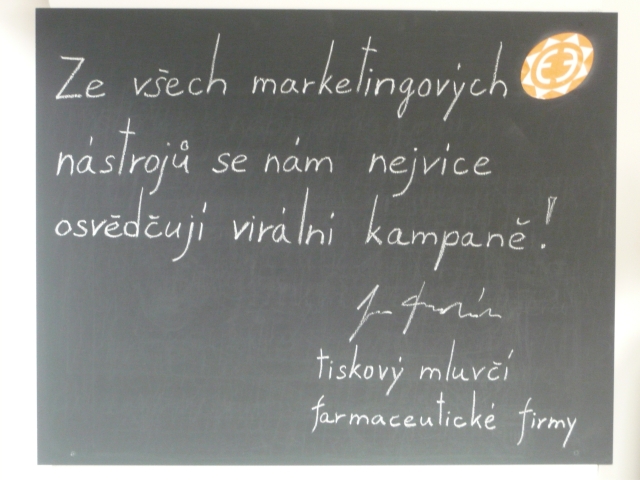 Ze všech marketingových
nástrojů se nám nejvíce
osvědčují virální kampaně!
tiskový mluvčí
farmaceutické firmy